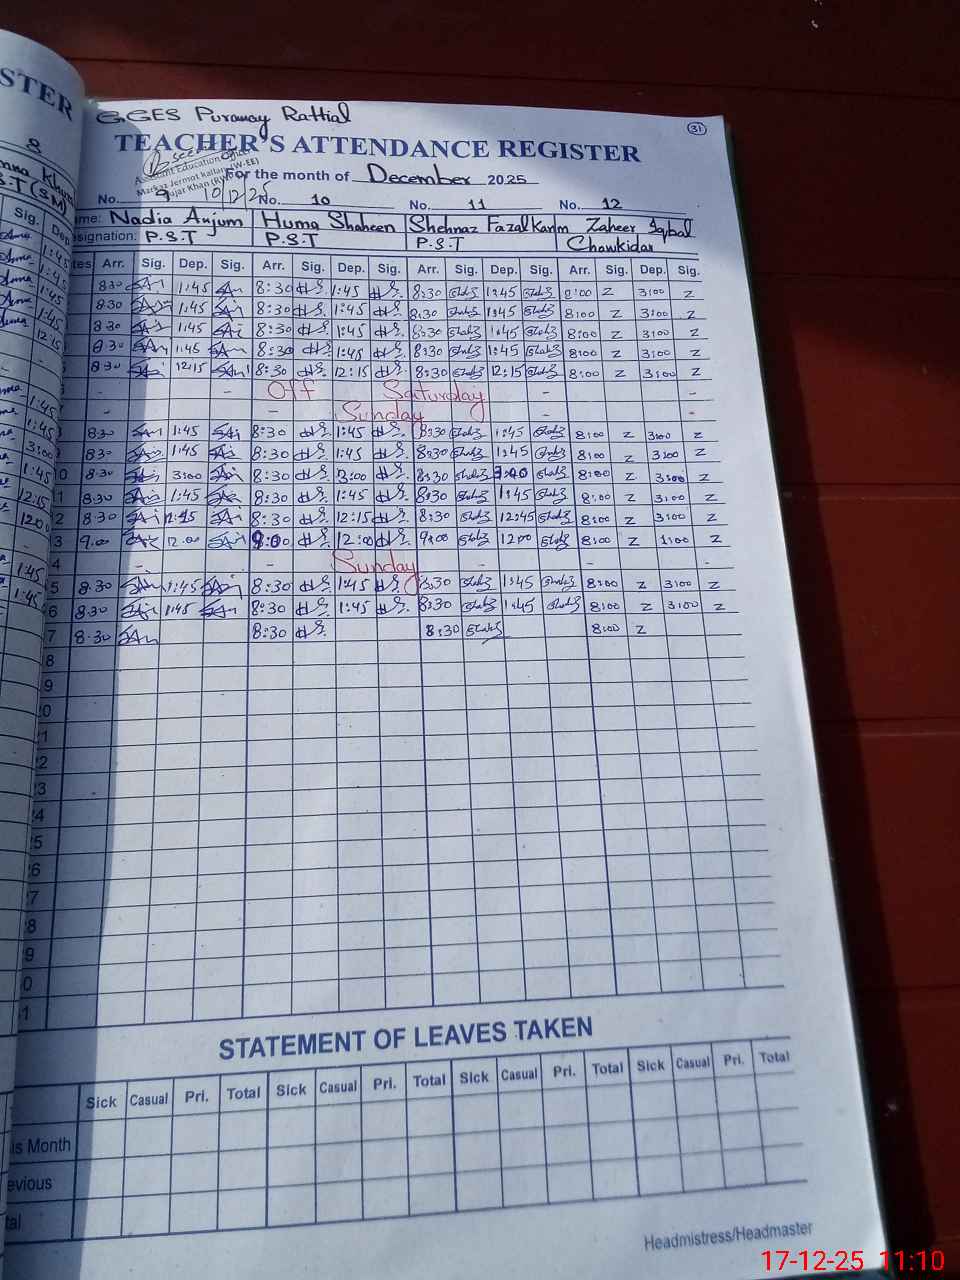 STER
8
S.T (SM)
Sig. Dep
G.GES Puranay Rattial
31
TEACHER'S ATTENDANCE REGISTER
seen
Assistant Education Officer
Markaz Jermot kallan (W-EE)
Gujar Khan (RWP)
10/12/25
For the month of December 2025
No. 9 No. 10 No. 11 No. 12
ame: Nadia Anjum Huma Shaheen Shehnaz Fazal Karim Zaheer Iqbal
esignation: P.S.T P.S.T P.S.T Chowkidar
tes Arr. Sig. Dep. Sig. Arr. Sig. Dep. Sig. Arr. Sig. Dep. Sig. Arr. Sig. Dep. Sig.
8:30 1:45 8:30 1:45 8:30 1:45 8:00 Z 3:00 Z
8:30 1:45 8:30 1:45 8:30 1:45 8:00 Z 3:00 Z
8:30 1:45 8:30 1:45 8:30 1:45 8:00 Z 3:00 Z
8:30 1:45 8:30 1:45 8:30 1:45 8:00 Z 3:00 Z
8:30 12:15 8:30 12:15 8:30 12:15 8:00 Z 3:00 Z
- - Off Saturday - -
- - Sunday - -
8:30 1:45 8:30 1:45 8:30 1:45 8:00 Z 3:00 Z
8:30 1:45 8:30 1:45 8:30 1:45 8:00 Z 3:00 Z
10 8:30 3:00 8:30 3:00 8:30 3:00 8:00 Z 3:00 Z
1 8:30 1:45 8:30 1:45 8:30 1:45 8:00 Z 3:00 Z
2 8:30 12:15 8:30 12:15 8:30 12:45 8:00 Z 3:00 Z
3 9:00 12:00 9:00 12:00 9:00 1200 8:00 Z 1:00 Z
4 - - - Sunday - - -
5 8:30 1:45 8:30 1:45 8:30 1:45 8:00 Z 3:00 Z
6 8:30 1:45 8:30 1:45 8:30 1:45 8:00 Z 3:00 Z
7 8:30 8:30 8:30 8:00 Z
8
9
0
1
2
3
4
5
6
7
8
9
0
1
STATEMENT OF LEAVES TAKEN
Sick Casual Pri. Total Sick Casual Pri. Total Sick Casual Pri. Total Sick Casual Pri. Total
is Month
evious
tal
Headmistress/Headmaster
17-12-25 11:10